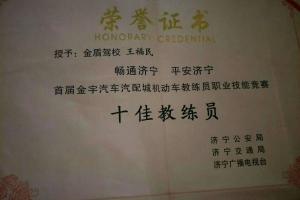 荣誉证书
HONORARY CREDENTIAL
授予：金盾驾校 王福民
畅通济宁 平安济宁
首届金宇汽车汽配城机动车教练员职业技能竞赛
十佳教练员
济宁公安局
济宁交通局
济宁广播电视台